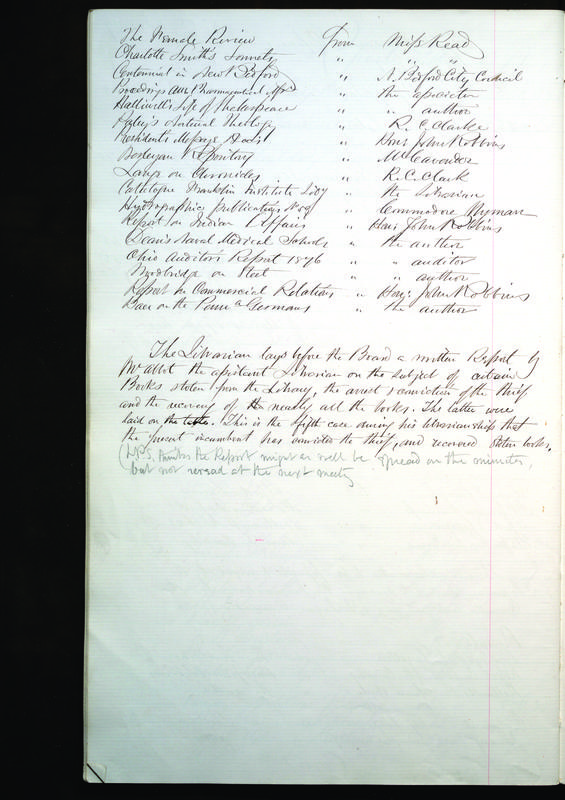 The Female Review from Miss Read
Charlotte Smith's Sonnets " " "
Centennial in New Bedford " N. Bedford City Council
Proceedings Am. Pharmaceutical Assn " the association
Halliwell's Life of Shakespeare " " author
Paley's Natural Theology " R. C. Clarke
Presidents Message & Docs " Hon. John Robbins
Wesleyan Repository " Mr Cavender
Lang on Chronicles " R. C. Clark
Catalogue Franklin Institute Liby " the Librarian
Hydrographic publications No 59 " Commodore Wyman
Report on Indian Affairs " Hon. John Robbins
Dean's Naval Medical Schools " the author
Ohio Auditors Report 1876 " " auditor
Woodbridge on Fleet " " author
Report on Commercial Relations " Hon. John Robbins
on the Penna Germans " the author
The Librarian lays before the Board a written Report by
Mr Abbot the assistant Librarian on the subject of certain
Books stolen from the Library, the arrest & conviction of the thief
and the recovery of the nearly all the books. The latter were
laid on the table. This is the fifth case during his librarianship that
the present incumbent has convicted the thief, and recovered stolen books.
(L.P.S. thinks the Report might as well be spread on the minutes,
but not reread at the next meeting